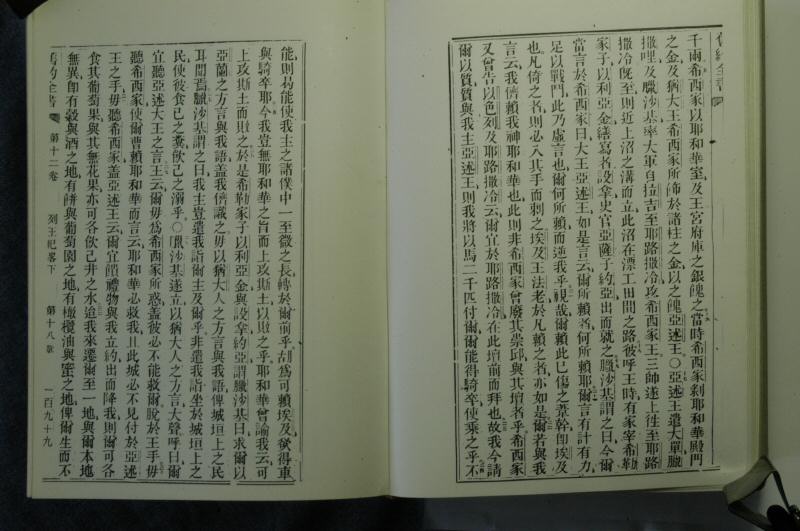 舊約全書
千兩希西家以耶和華室及王宮府庫之銀餽之當時希西家剎耶和華殿門
之金及猶大王希西家所飾於諸柱之金以之餽亞述王〇亞述王遣大單臘
撒哩及臘沙基率大軍自拉吉至耶路撒冷攻希西家王三帥遂上往至耶路
撒冷旣至則近上沼之溝而立此沼在漂工田間之路彼呼王時有家宰希勒
家子以利亞金繕寫者設拿史官亞薩子約亞出而就之臘沙基謂之曰今爾
當言於希西家曰大王亞述王如是言云爾所賴者何所賴耶爾言有計有力
足以戰鬥此乃虛言也爾何所賴而逆我乎視哉爾賴此已傷之葦幹卽埃及
也凡倚之者則必入其手而刺之埃及王法老於凡賴之者亦如是爾若與我
言云我儕賴我神耶和華也此則非希西家曾廢其崇邱與其壇者乎希西家
又曾告以色列及耶路撒冷云爾宜於耶路撒冷在此壇前而拜也故我今請
爾以質質與我主亞述王則我將以馬二千匹付爾爾能得騎卒使乘之乎不
能則曷能使我主之諸僕中一至微之長轉於爾前乎胡爲可賴埃及獲得車
與騎卒耶今我豈無耶和華之旨而上攻斯土以敗之乎耶和華曾諭我云可
上攻斯土而敗之於是希勒家子以利亞金與設拿約亞謂臘沙基曰求爾以
亞蘭之方言與我語蓋我儕識之毋以猶大人之方言與我語俾城垣上之民
耳聞焉臘沙基謂之曰我主豈遣我詣爾主及爾乎非遣我詣坐於城垣上之
民使彼食己之糞飲己之溺乎〇臘沙基遂立以猶大人之方言大聲呼曰爾
宜聽亞述大王之言王云爾毋爲希西家所惑蓋彼必不能救爾脫於王手毋
聽希西家使爾曹賴耶和華而言云耶和華必救我且此城必不見付於亞述
王之手毋聽希西家蓋亞述王云爾宜饋禮物與我立約出而降我則爾可各
食其葡萄果與其無花果亦可各飲己井之水迨我來遷爾至一地與爾本地
無異卽有穀與酒之地有餅與葡萄園之地有橄欖油與蜜之地俾爾生而不
舊約全書 第十二卷 列王紀畧下 第十八章 一百九十九